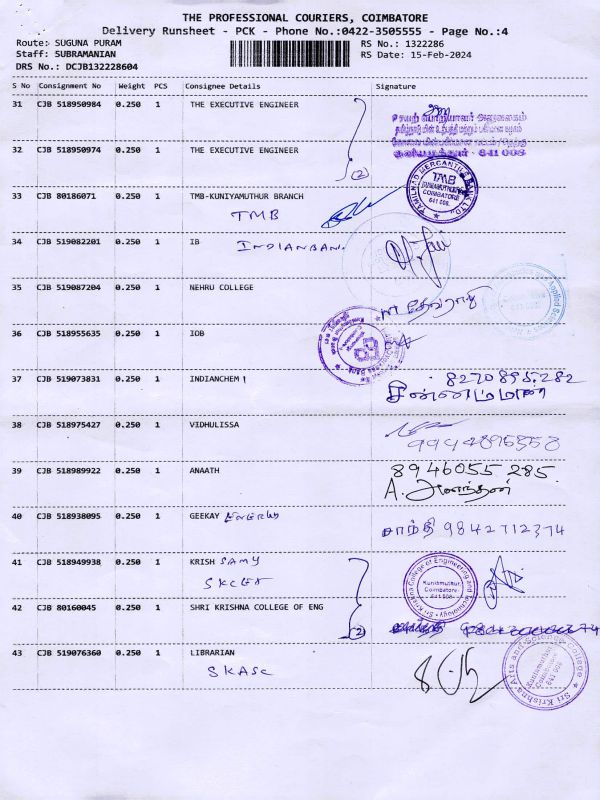 THE PROFESSIONAL COURIERS, COIMBATORE
Delivery Runsheet - PCK - Phone No.:0422-3505555 - Page No.:4
Route: SUGUNA PURAM
RS No.: 1322286
Staff: SUBRAMANIAN
RS Date: 15-Feb-2024
DRS No.: DCJB132228604
S No Consignment No Weight PCS Consignee Details Signature
31 CJB 518950984 0.250 1 THE EXECUTIVE ENGINEER
32 CJB 518950974 0.250 1 THE EXECUTIVE ENGINEER
(2)
641 008
33 CJB 80186071 0.250 1 TMB-KUNIYAMUTHUR BRANCH
TMB
TAMILNAD MERCANTILE BANK LTD
TMB
COIMBATORE
641 008.
34 CJB 519082201 0.250 1 IB INDIANBAN.
35 CJB 519087204 0.250 1 NEHRU COLLEGE
36 CJB 518955635 0.250 1 IOB
37 CJB 519073831 0.250 1 INDIANCHEM
8270895282
சின்னம்மாள்
38 CJB 518975427 0.250 1 VIDHULISSA
39 CJB 518989922 0.250 1 ANAATH
8946055 285
A. ஆனந்தன்
40 CJB 518938095 0.250 1 GEEKAY
சாந்தி 9842712374
41 CJB 518949938 0.250 1 KRISH SAMY
SKCET
Sri Krishna College of Engineering and Technology
Kuniamuthur,
Coimbatore-
641 008
42 CJB 80160045 0.250 1 SHRI KRISHNA COLLEGE OF ENG
(2)
43 CJB 519076360 0.250 1 LIBRARIAN
SKASC
Sri Krishna Arts and Science College
Kuniamuthur
Coimbatore
641 008